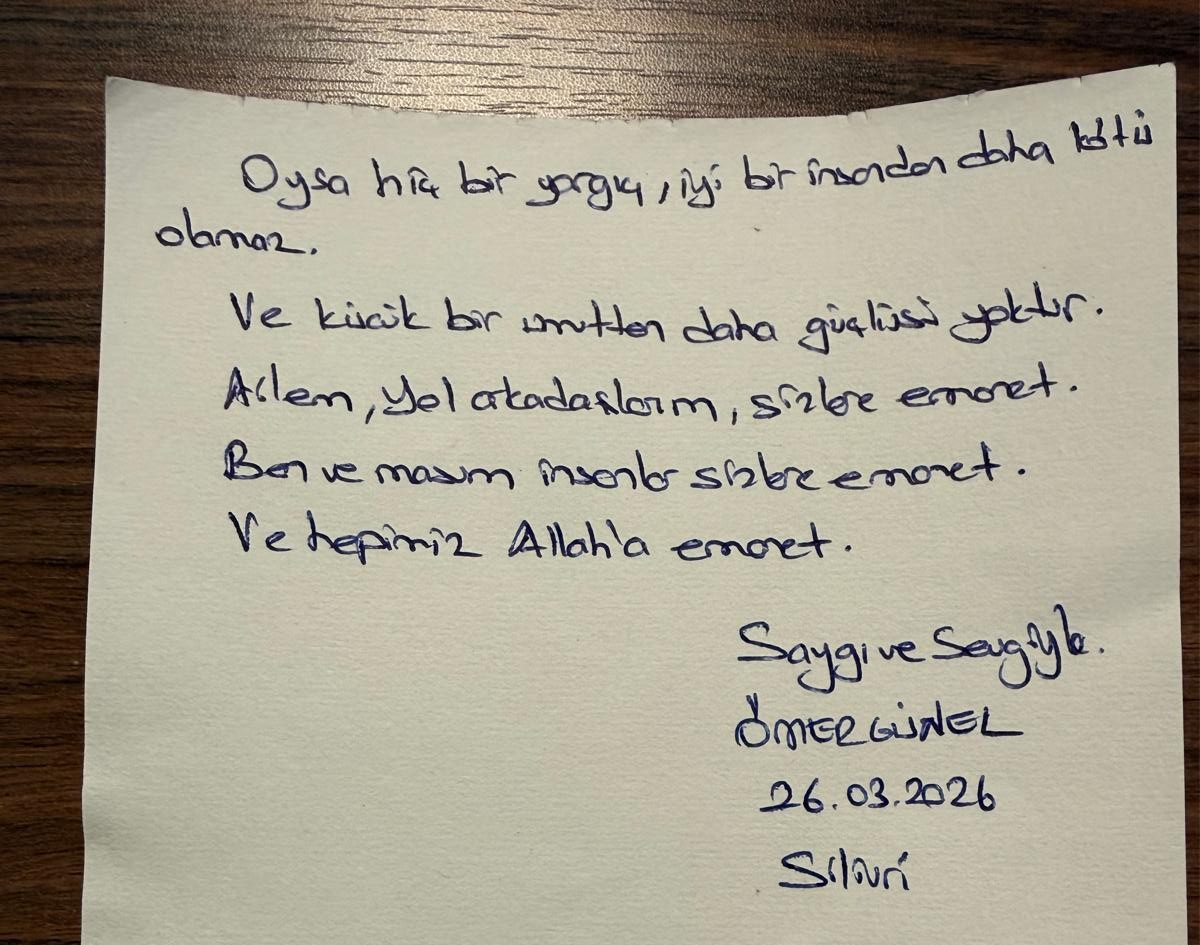 Oysa hiç bir yargıç, iyi bir insandan daha kötü
olamaz.
Ve küçük bir umuttan daha güçlüsü yoktur.
Ailem, yol arkadaşlarım, sizlere emanet.
Ben ve masum insanlar sizlere emanet.
Ve hepimiz Allah'a emanet.
Saygı ve Sevgiyle.
ÖMER GÜNEL
26.03.2026
Silivri